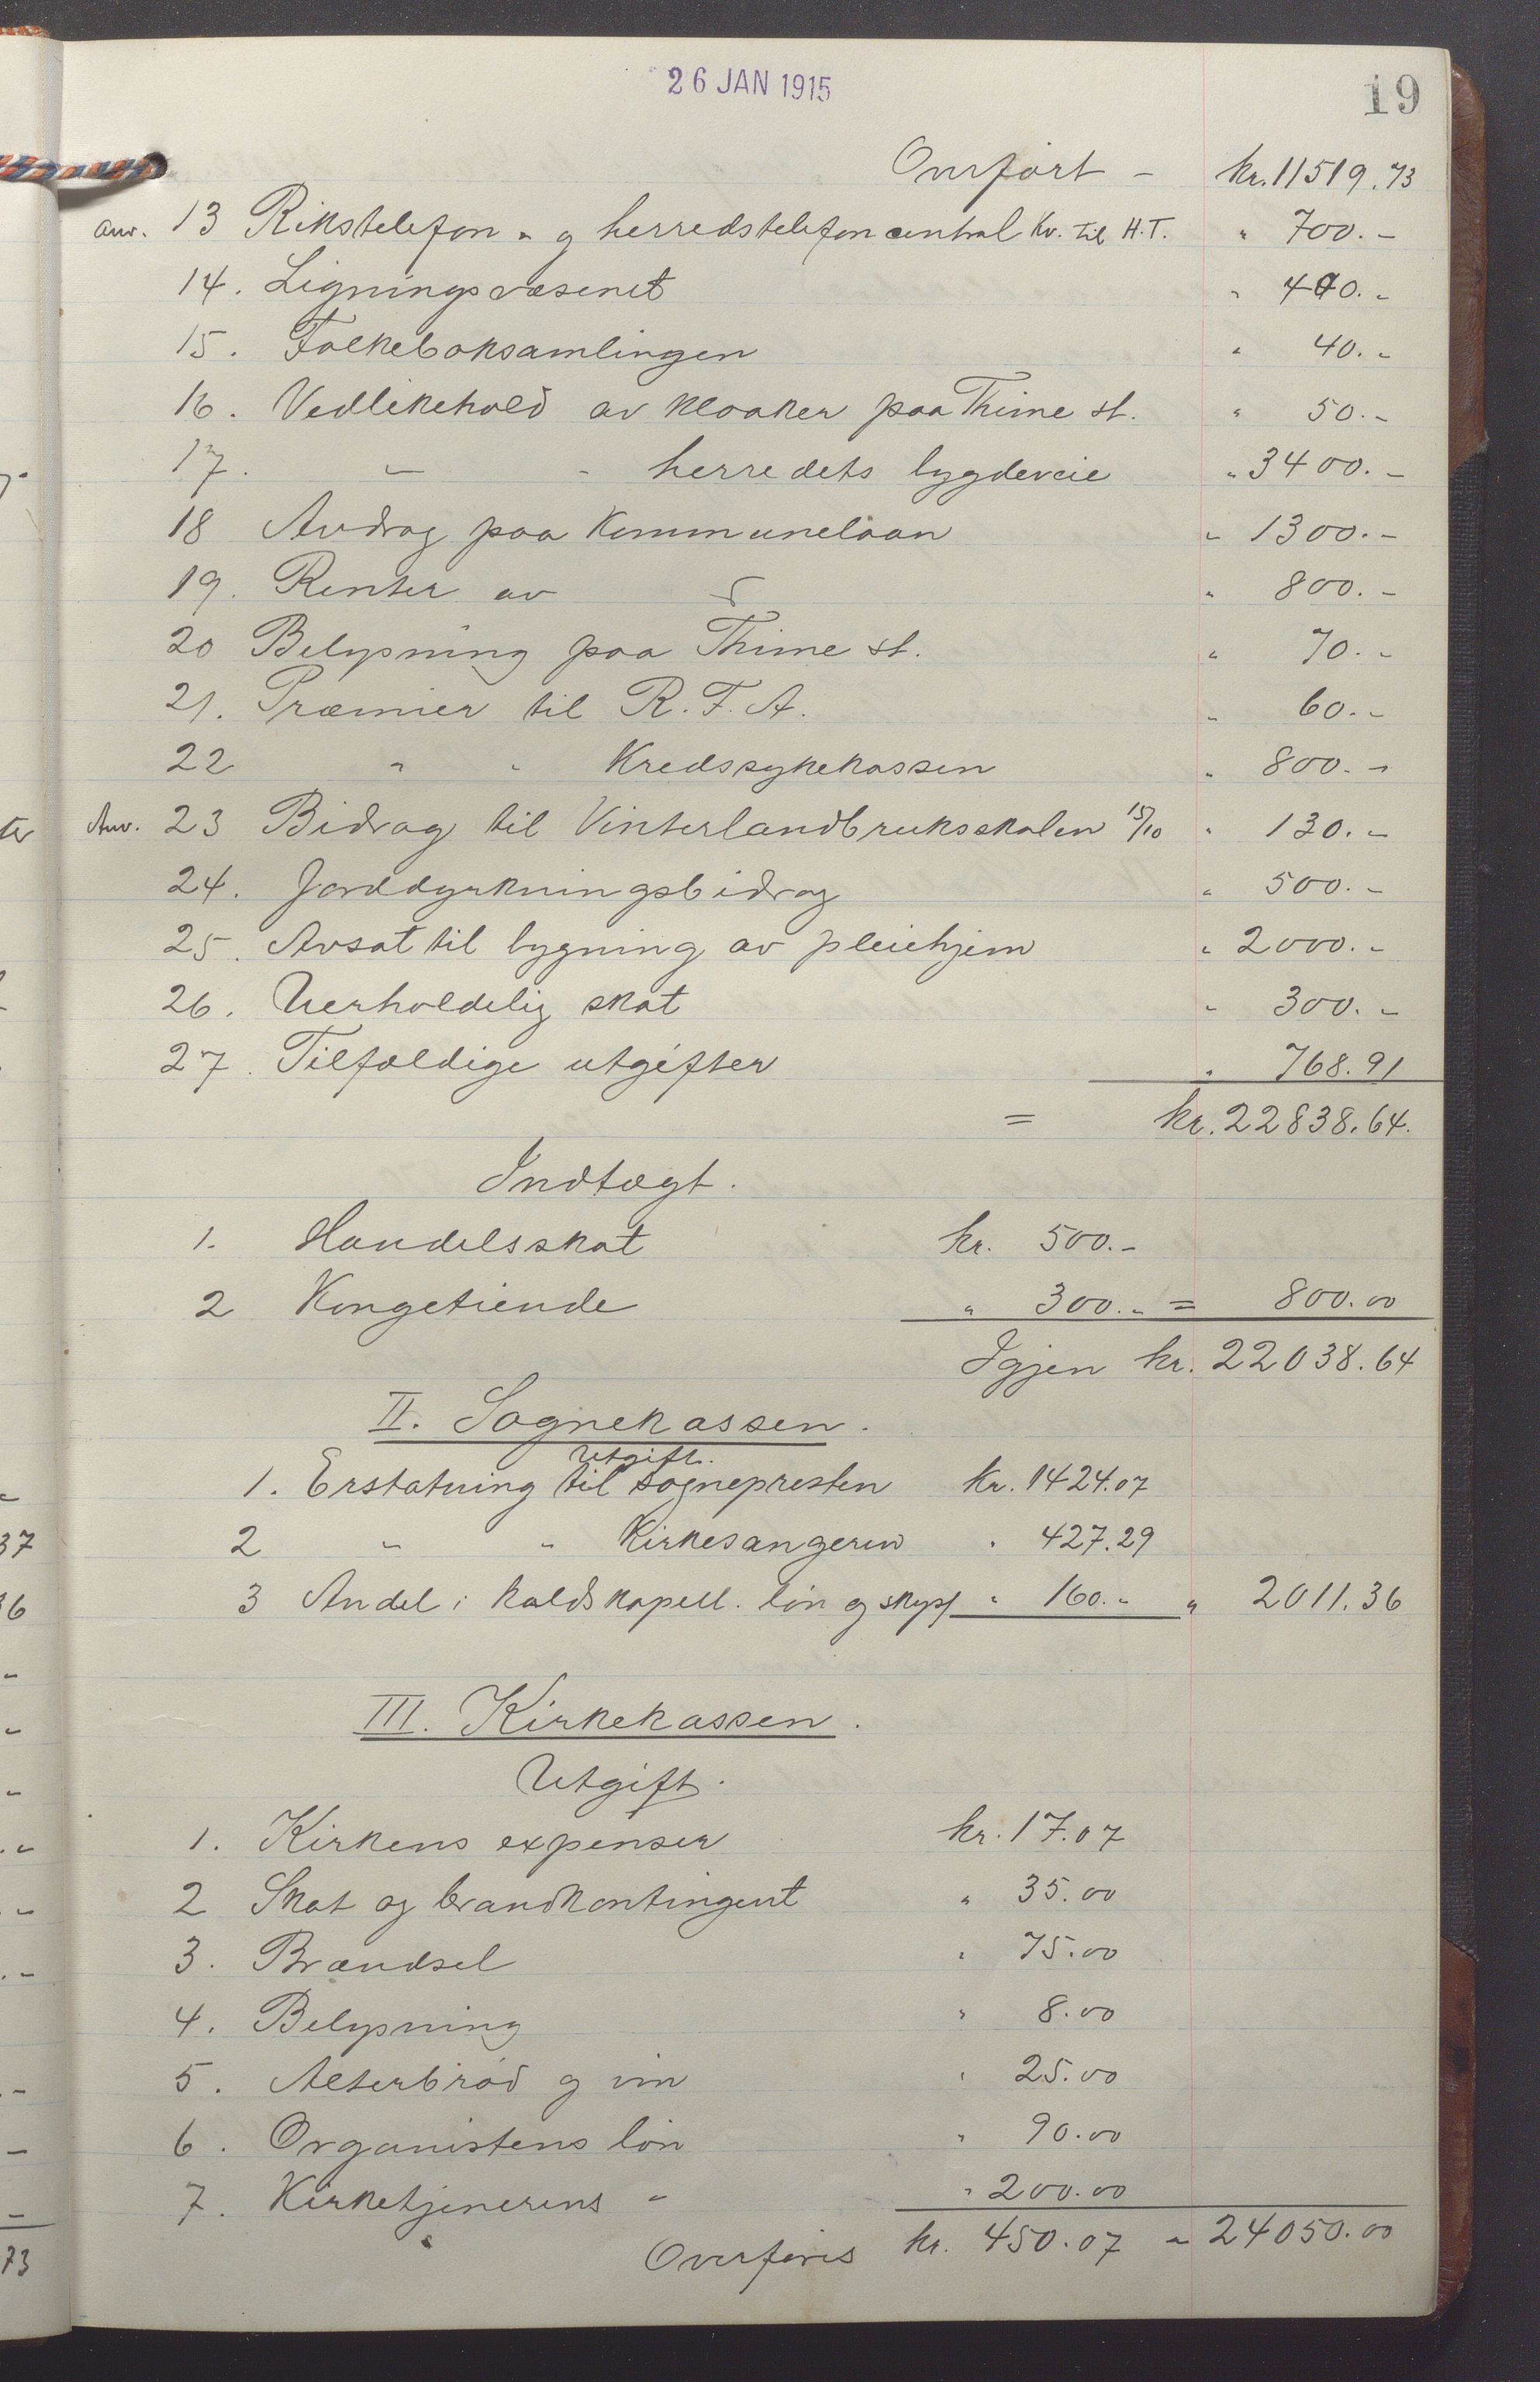 26 JAN 1915
19
Overført - kr. 11519.73
anv. 13 Rikstelefon- og herredstelefoncentral kv. til H.T. " 700.-
14. Ligningsvæsenet " 400.-
15. Folkeboksamlingen " 40.-
16. Vedlikehold av kloaker paa Thime st. " 50.-
17. " - herredets bygdeveie " 3400.-
18 Avdrag paa kommunelaan " 1300.-
19. Renter av " 800.-
20 Belysning paa Thime st. " 70.-
21. Præmier til R.F.A. " 60.-
22 " " Kredssykekassen " 800.-
Anv. 23 Bidrag til Vinterlandbruksskolen 15/10 " 130.-
24. Jorddyrkningsbidrag " 500.-
25. Avsat til bygning av pleiehjem " 2000.-
26. Uerholdelig skat " 300.-
27. Tilfældige utgifter " 768.91
= kr. 22838.64.
Indtægt.
1. Handelsskat kr. 500.-
2 Kongetiende " 300.- = 800.00
Igjen kr. 22038.64
II. Sognekassen.
Utgift.
1. Erstatning til sognepresten kr. 1424.07
2 " " Kirkesangeren " 427.29
3 Andel i kaldskapell. løn og skyss " 160.- " 2011.36
III. Kirkekassen.
Utgift.
1. Kirkens expenser kr. 17.07
2 Skat og brandkontingent " 35.00
3. Brændsel " 75.00
4. Belysning " 8.00
5. Alterbrød og vin " 25.00
6. Organistens løn " 90.00
7. Kirketjenerens " " 200.00
Overføres kr. 450.07 " 24050.00
ter
37
36
73